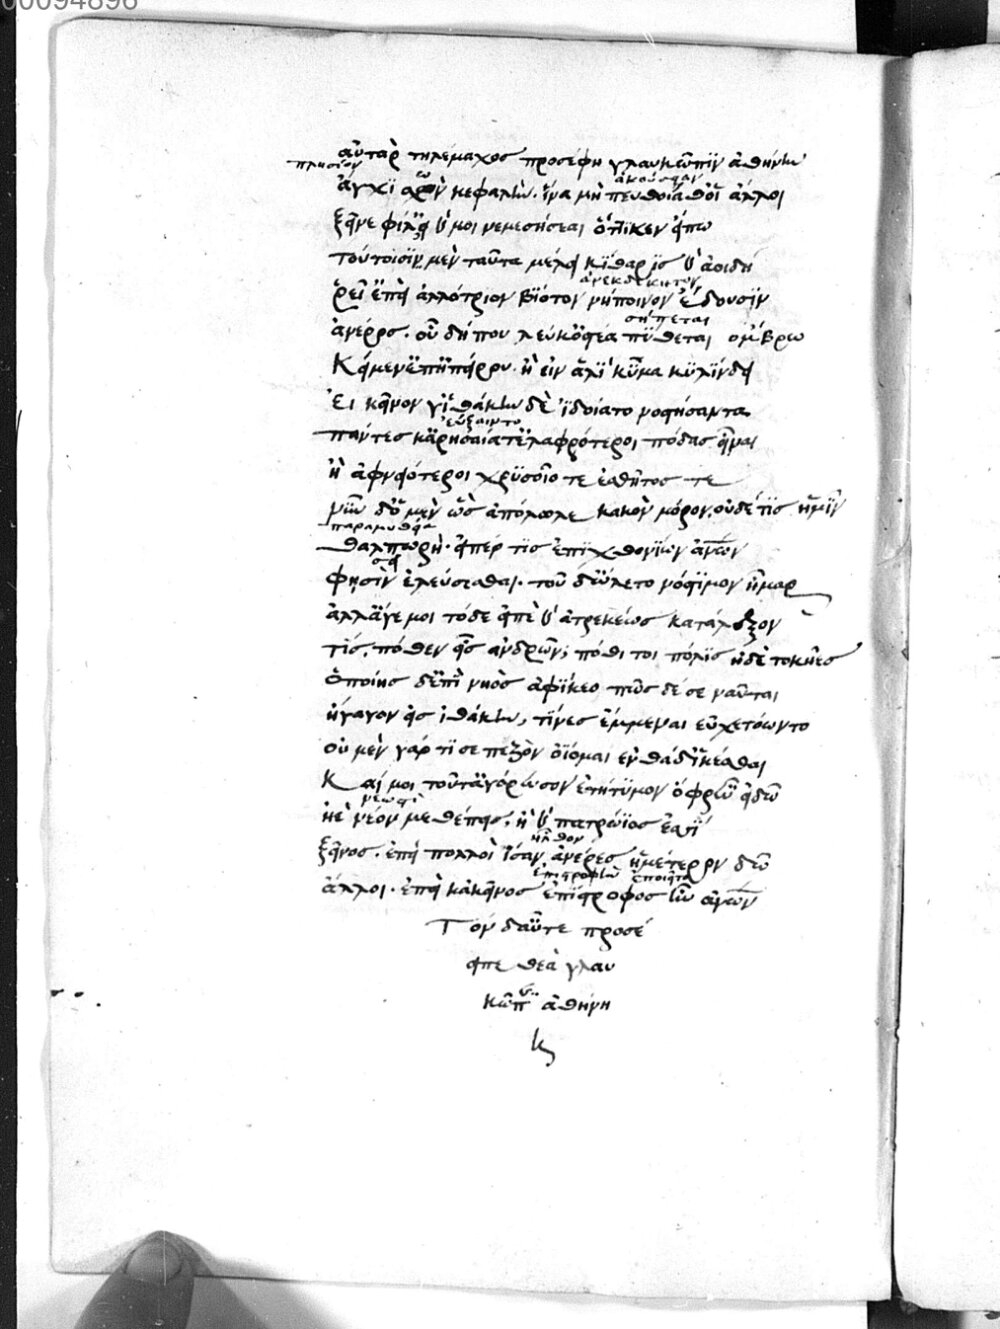 00094896
αὐτὰρ τηλέμαχος προσέφη γλαυκῶπιν ἀθήνην
πλησίον ἀκούσειαν
ἄγχι σχὼν κεφαλὴν. ἵνα μὴ πευθοίαθ' οἱ ἄλλοι
ξεῖνε φίλ' εἰ καί μοι νεμεσήσεαι ὅττι κεν εἴπω
τούτοισιν μὲν ταῦτα μέλει κίθαρις καὶ ἀοιδή
ἀνεκδίκητον
ῥεῖ' ἐπεὶ ἀλλότριον βίοτον νήποινον ἔδουσιν
σήπεται
ἀνέρος. οὗ δή που λεύκ' ὀστέα πύθεται ὄμβρω
κείμεν' ἐπ' ἠπείρου. ἢ εἰν ἁλὶ κῦμα κυλίνδει
εἰ κεῖνον γ' ἰθάκην δὲ ἰδοίατο νοστήσαντα
εὔξαιντο
πάντες κ' ἀρησαίατ' ἐλαφρότεροι πόδας εἶναι
ἢ ἀφνειότεροι χρυσοῖο τε ἐσθῆτος τε
νῦν δ' ὃ μὲν ὣς ἀπόλωλε κακὸν μόρον. οὐδέ τις ἡμῖν
παραμυθία
θαλπωρή. εἴπερ τις ἐπιχθονίων ἀνθρώπων
φησὶν ἐλεύσεσθαι. τοῦ δ' ὤλετο νόστιμον ἦμαρ
ἀλλ' ἄγε μοι τόδε εἰπὲ καὶ ἀτρεκέως κατάλεξον
τίς, πόθεν εἷς ἀνδρῶν; πόθι τοι πόλις ἠδὲ τοκῆες
ὁποίης δ' ἐπὶ νηὸς ἀφίκεο πῶς δέ σε ναῦται
ἤγαγον εἰς ἰθάκην, τίνες ἔμμεναι εὐχετόωντο
οὐ μὲν γάρ τί σε πεζὸν ὀΐομαι ἐνθάδ' ἱκέσθαι
καί μοι τοῦτ' ἀγόρευσον ἐτήτυμον ὄφρ' εὖ εἰδῶ
νεωστὶ
ἠὲ νέον μεθέπεις, ἢ καὶ πατρώϊος ἐσσί
ἦλθον
ξεῖνος. ἐπεὶ πολλοὶ ἴσαν ἀνέρες ἡμέτερον δῶ
ἐπιστροφὴν ἐποιεῖτο
ἄλλοι. ἐπεὶ κἀκεῖνος ἐπίστροφος ἦν ἀνθρώπων
Τὸν δ' αὖτε προσέ
ειπε θεὰ γλαυ
κῶπις ἀθήνη